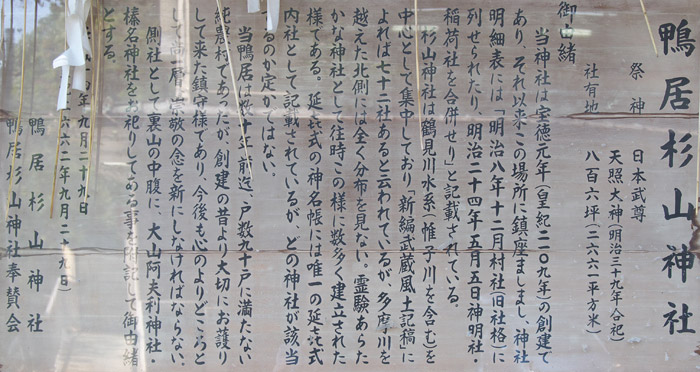 鴨居杉山神社
祭神 日本武尊
天照大神(明治三十九年合祀)
社有地 八百六坪(二六六一平方米)
御由緒
当神社は宝徳元年(皇紀二一〇九年)の創建で
あり、それ以来この場所に鎮座ましまし、神社
明細表には「明治八年十二月村社(旧社格)に
列せられたり、明治二十四年五月五日神明社・
稲荷社を合併せり」と記載されている。
杉山神社は鶴見川水系(帷子川を含む)を
中心として集中しており「新編武蔵風土記稿」に
よれば七十二社あると云われているが、多摩川を
越えた北側には全く分布を見ない。霊験あらた
かな神社として往時この様に数多く建立された
様である。延㐂式の神名帳には唯一の延㐂式
内社として記載されているが、どの神社が該当
するのか定かではない。
当鴨居は数十年前迄、戸数九十戸に満たない
純農村であったが、創建の昔より大切にお護り
して来た鎮守様であり、今後も心のよりどころと
して尚一層、崇敬の念を新にしなければならない。
側社として裏山の中腹に、大山阿夫利神社・
榛名神社をお祀りしてある事を附記して御由緒
とする。
年九月二十九日
六六二年九月二十九日)
鴨居杉山神社
鴨居杉山神社奉賛会